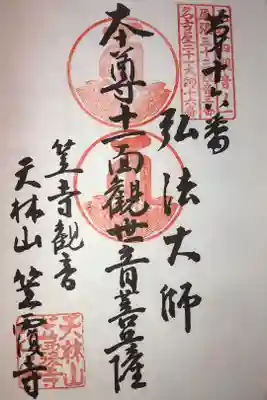 第十六番
弘法大師
本尊十一面観世音菩薩
笠寺観音
天林山 笠覆寺